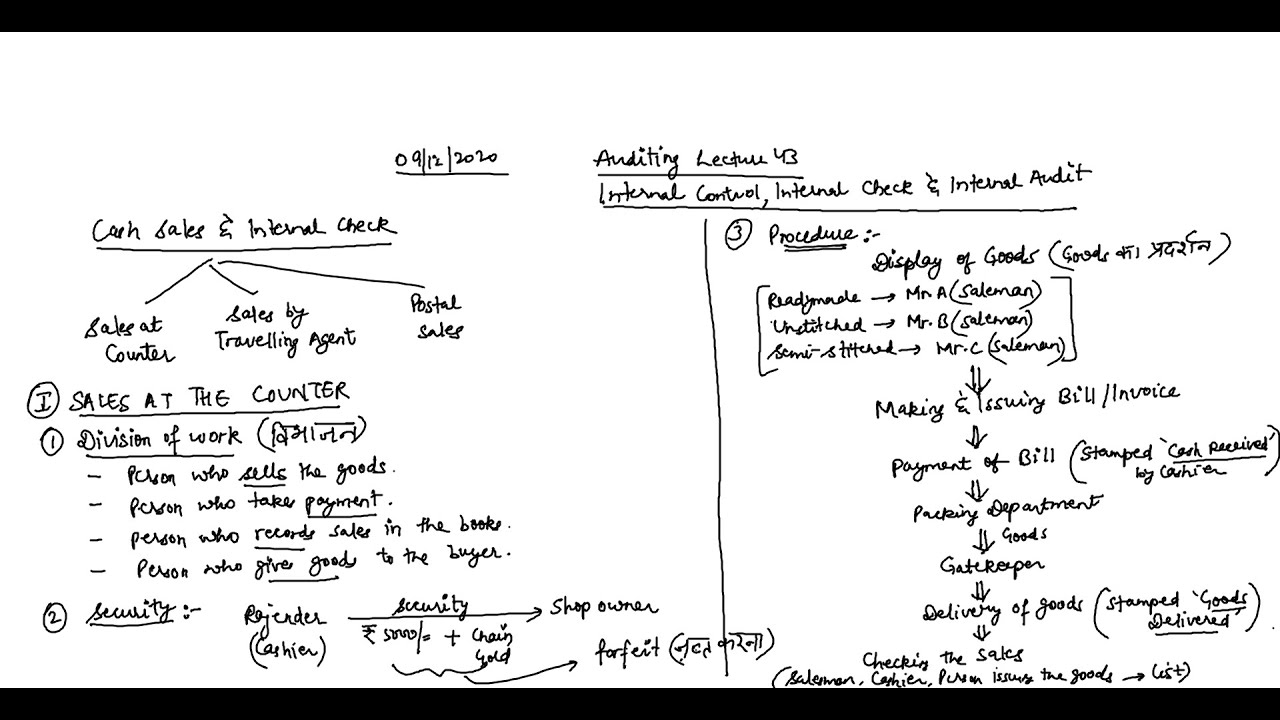 09/12/2020
Auditing Lecture 43
Internal Control, Internal Check & Internal Audit
Cash Sales & Internal Check
Sales at Counter
Sales by Travelling Agent
Postal Sales
I SALES AT THE COUNTER
1 Division of work (विभाजन)
- Person who sells the goods.
- Person who takes payment.
- Person who records sales in the books.
- Person who gives goods to the buyer.
2 Security :-
Rajender (Cashier)
security
₹ 5000/= + Chain Gold
Shop owner
forfeit (जब्त करना)
3 Procedure :-
Display of Goods (Goods का प्रदर्शन)
Readymade → Mr. A (Saleman)
Unstitched → Mr. B (Saleman)
Semi-stitched → Mr. C (Saleman)
Making & Issuing Bill/Invoice
Payment of Bill (Stamped 'Cash Received' by Cashier
Packing Department
Goods
Gatekeeper
Delivery of goods (Stamped 'Goods Delivered')
Checking the Sales
(Salesman, Cashier, Person issuing the goods → List)